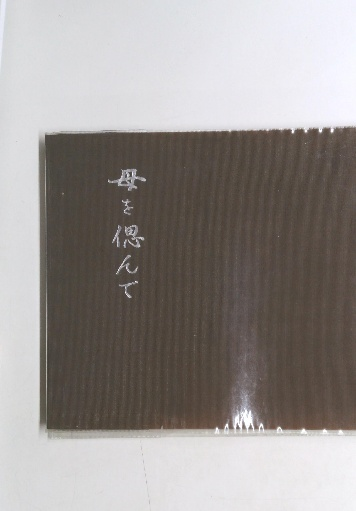 母を偲んで